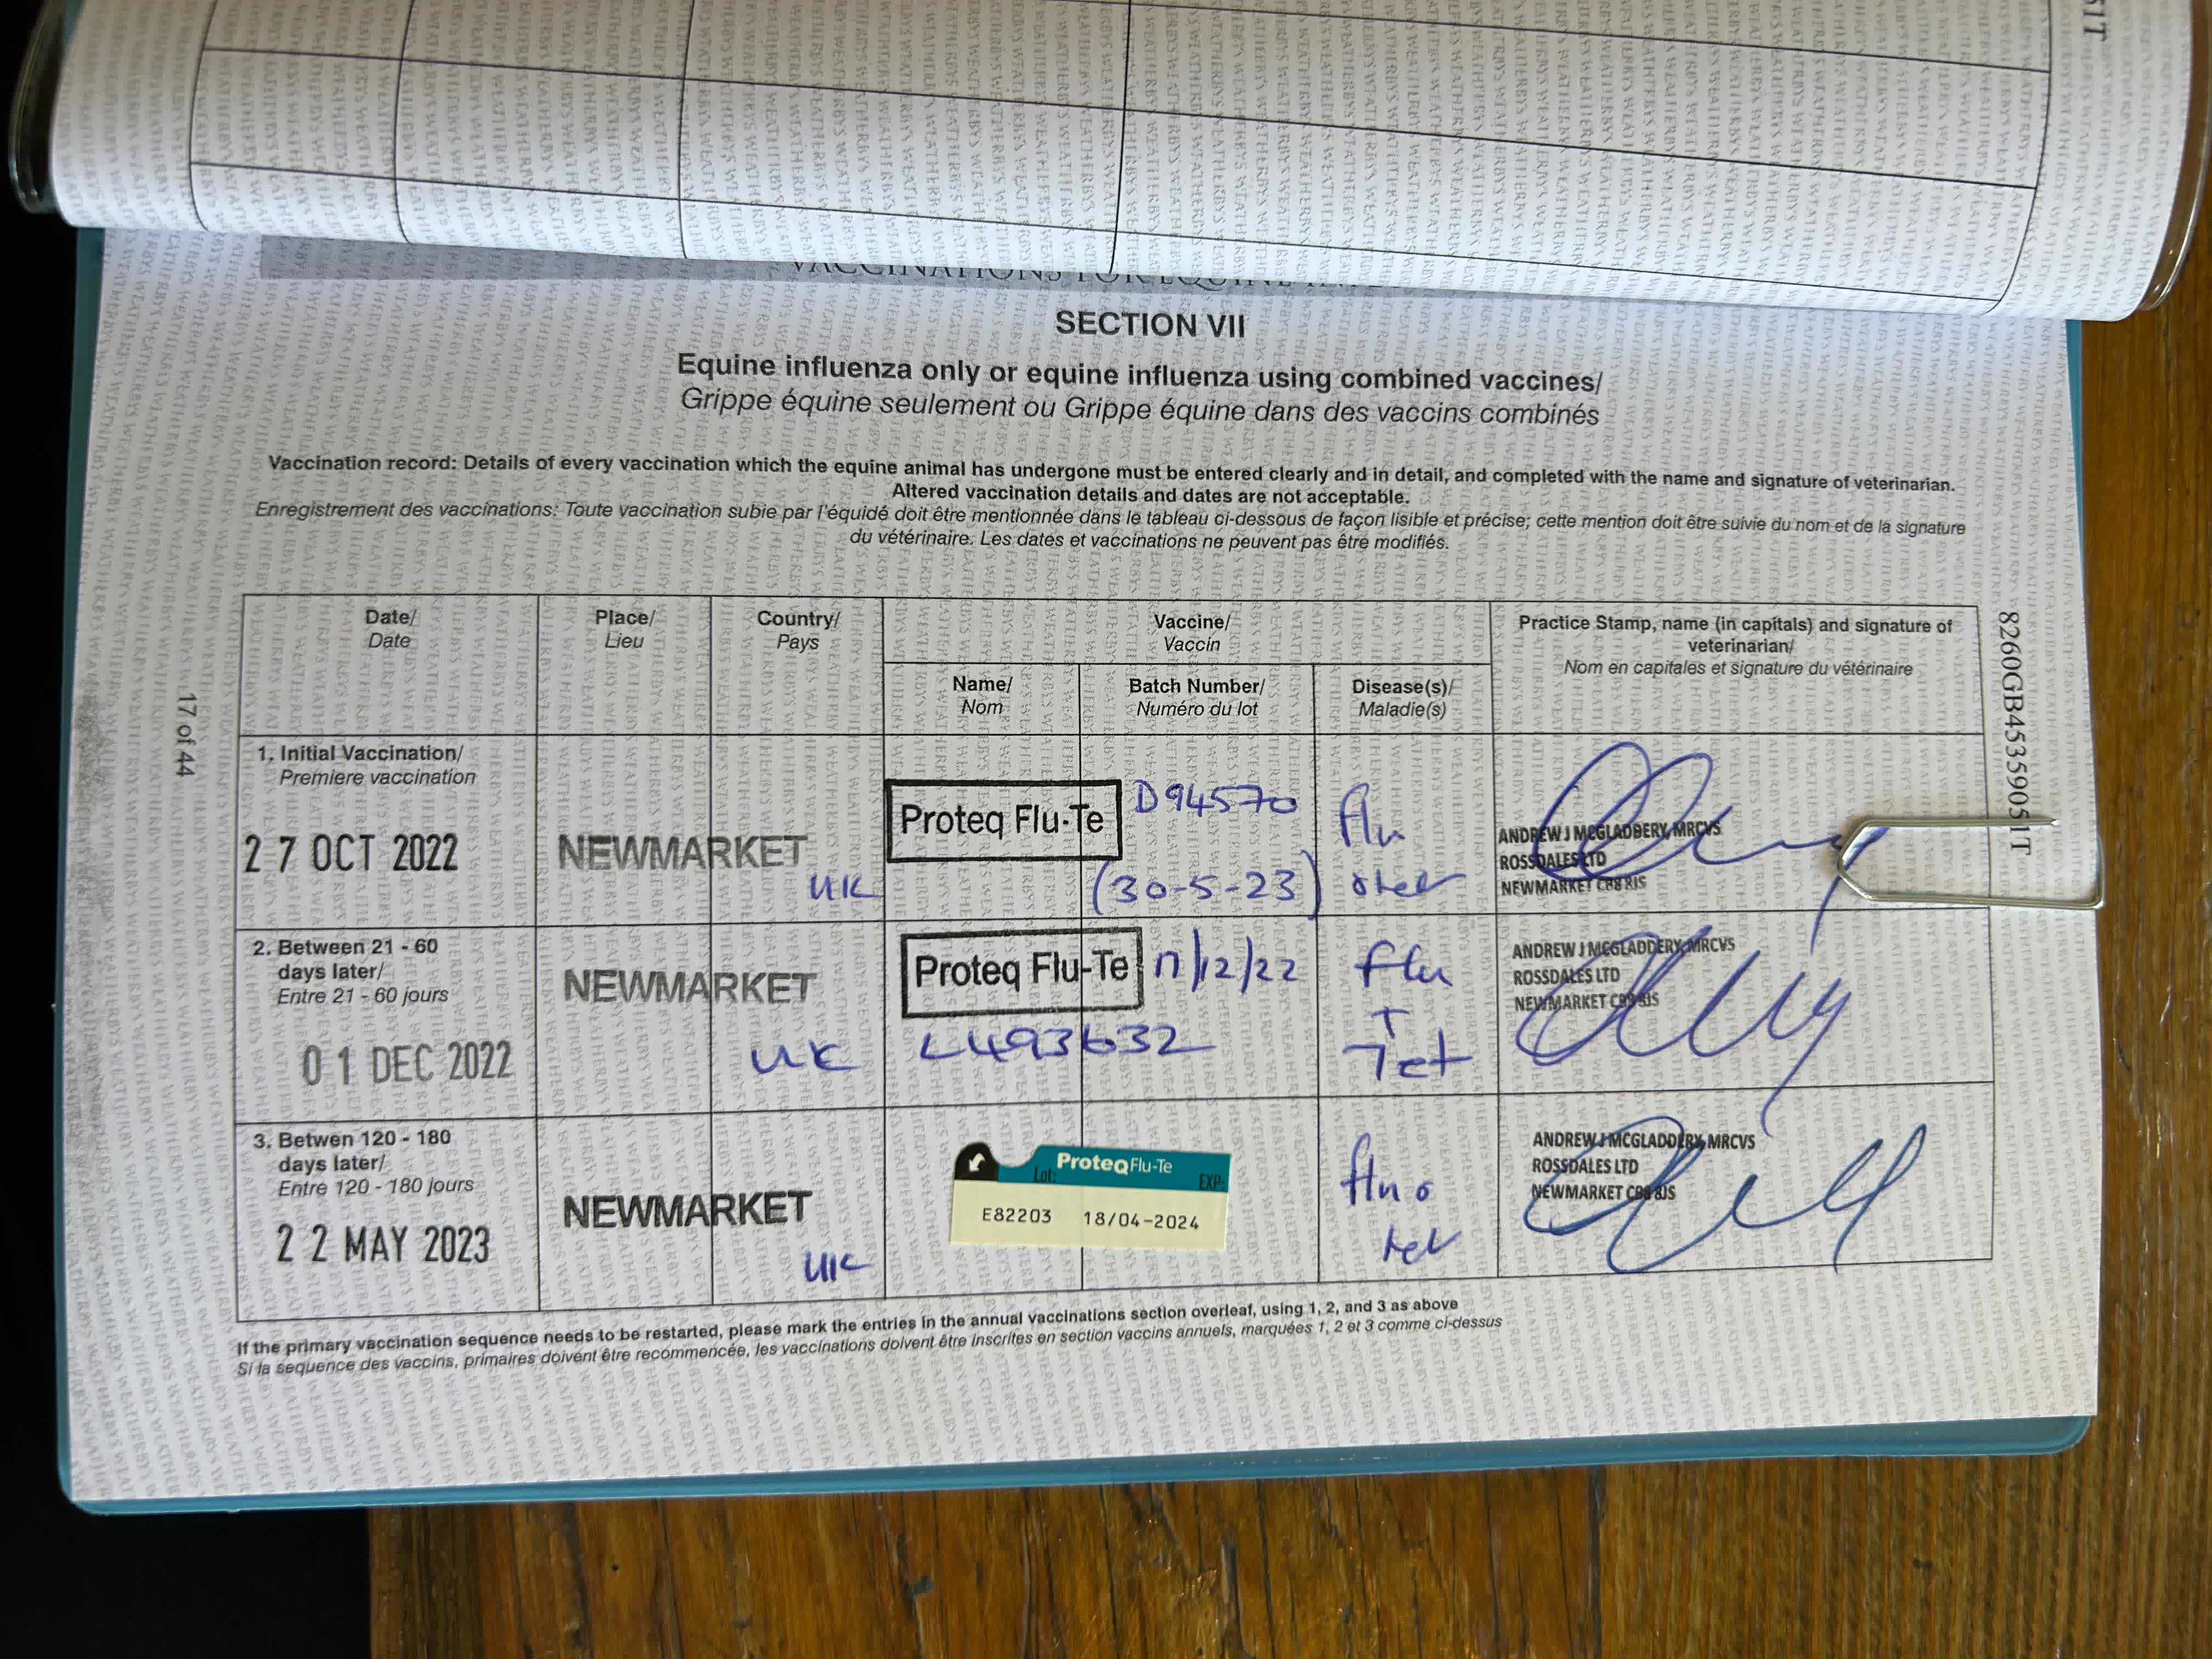 51T
SECTION VII
Equine influenza only or equine influenza using combined vaccines/
Grippe équine seulement ou Grippe équine dans des vaccins combinés
Vaccination record: Details of every vaccination which the equine animal has undergone must be entered clearly and in detail, and completed with the name and signature of veterinarian.
Altered vaccination details and dates are not acceptable.
Enregistrement des vaccinations: Toute vaccination subie par l'équidé doit être mentionnée dans le tableau ci-dessous de façon lisible et précise; cette mention doit être suivie du nom et de la signature
du vétérinaire. Les dates et vaccinations ne peuvent pas être modifiés.
Date/
Date
Place/
Lieu
Country/
Pays
Vaccine/
Vaccin
Practice Stamp, name (in capitals) and signature of
veterinarian/
Nom en capitales et signature du vétérinaire
Name/
Nom
Batch Number/
Numéro du lot
Disease(s)/
Maladie(s)
1. Initial Vaccination/
Premiere vaccination
27 OCT 2022
NEWMARKET
UK
Proteq Flu-Te
D94570
(30-5-23)
flu
ANDREW J MCGLADDERY, MRCVS
ROSSDALES LTD
NEWMARKET CB8 8JS
2. Between 21 - 60
days later/
Entre 21 - 60 jours
01 DEC 2022
NEWMARKET
UK
Proteq Flu-Te
17/12/22
L493632
flu
+
Tet
ANDREW J MCGLADDERY, MRCVS
ROSSDALES LTD
NEWMARKET CB8 8JS
3. Betwen 120 - 180
days later/
Entre 120 - 180 jours
22 MAY 2023
NEWMARKET
UK
ProteqFlu-Te
Lot:
EXP:
E82203 18/04-2024
flu
tet
ANDREW J MCGLADDERY, MRCVS
ROSSDALES LTD
NEWMARKET CB8 8JS
If the primary vaccination sequence needs to be restarted, please mark the entries in the annual vaccinations section overleaf, using 1, 2, and 3 as above
Si la sequence des vaccins, primaires doivent être recommencée, les vaccinations doivent être inscrites en section vaccins annuels, marquées 1, 2 et 3 comme ci-dessus
17 of 44
8260GB45359051T